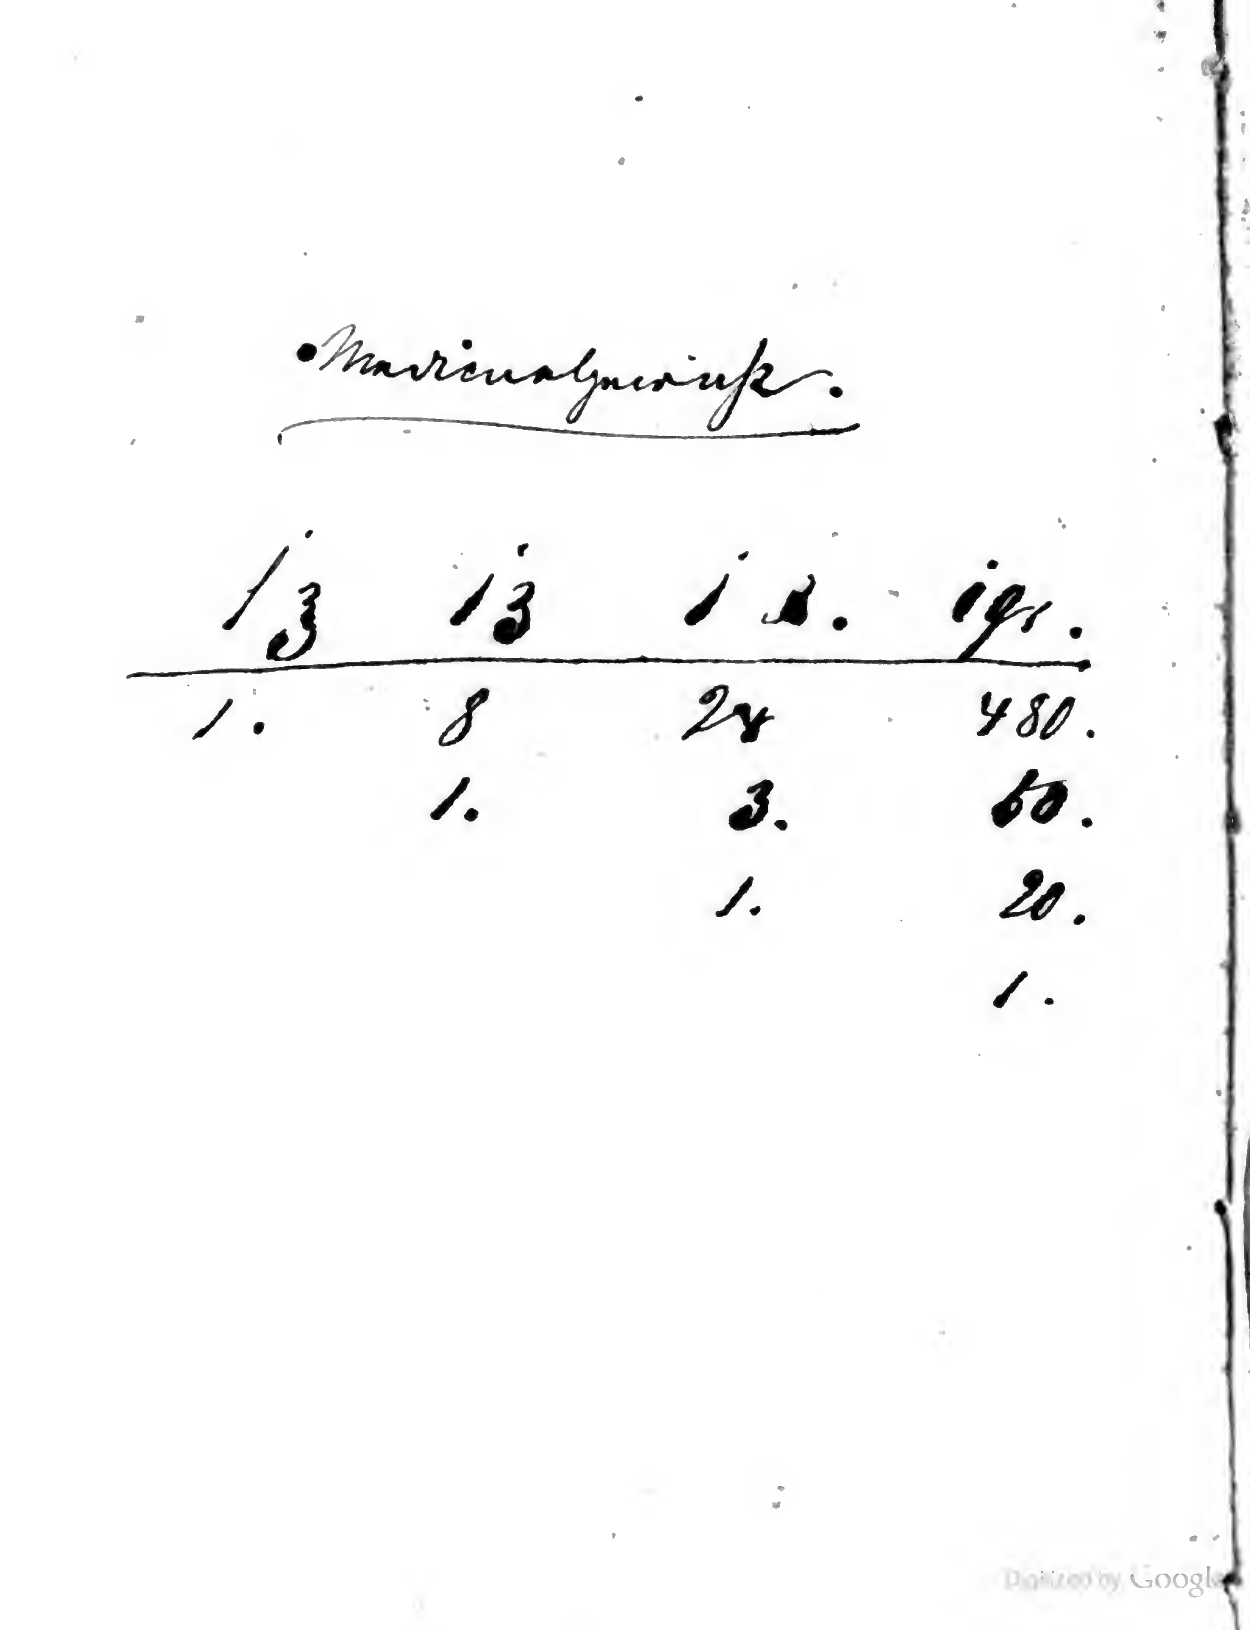 Medicinalgewicht.
i℥ iʒ i ℈. igr.
1. 8 24 480.
1. 3. 60.
1. 20.
1.
Digitized by Google